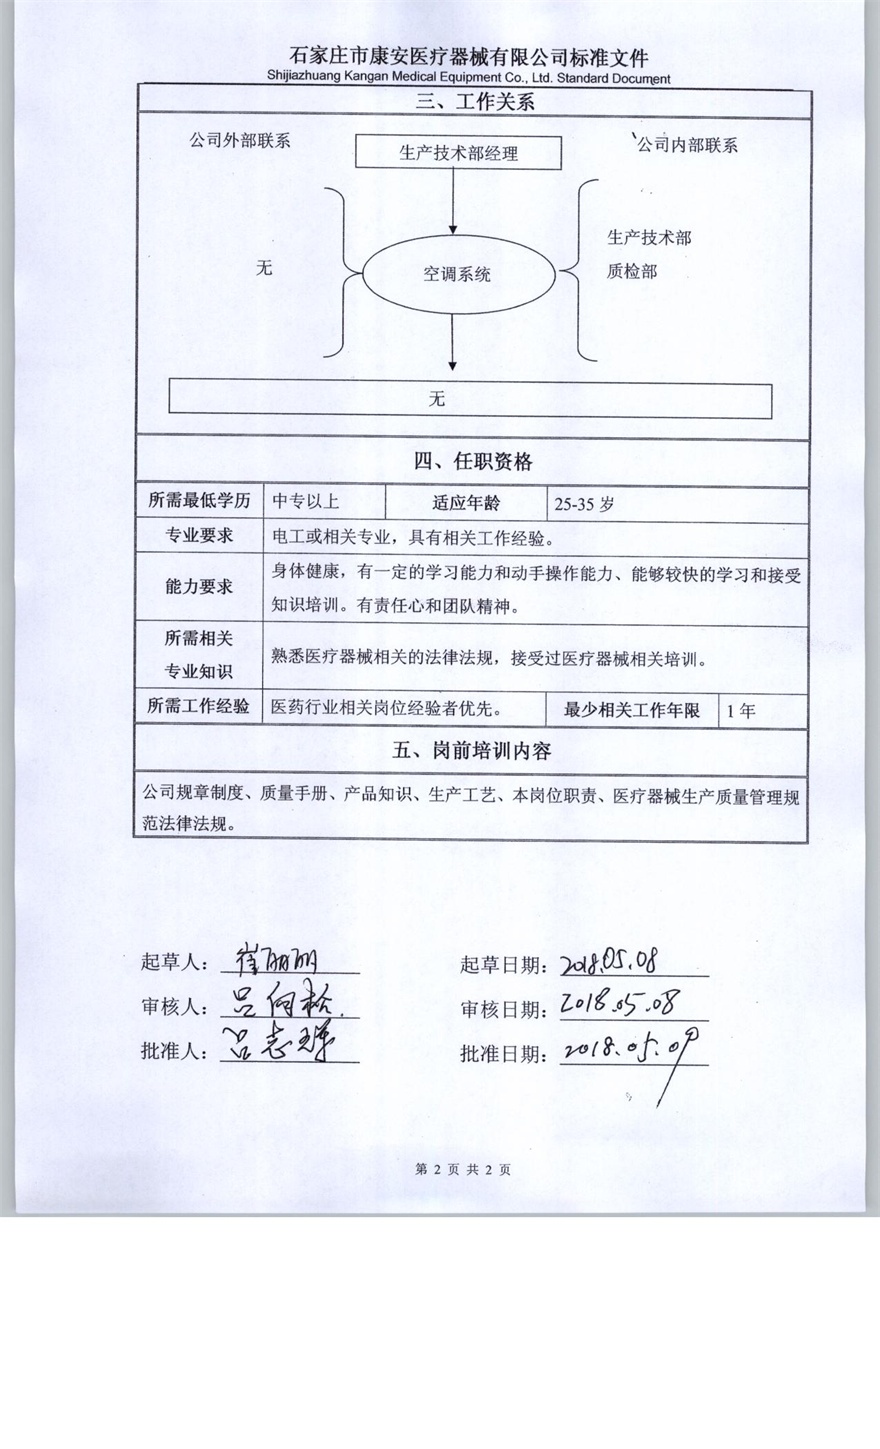 石家庄市康安医疗器械有限公司标准文件
Shijiazhuang Kangan Medical Equipment Co., Ltd. Standard Document
三、工作关系
公司外部联系
生产技术部经理
公司内部联系
无
空调系统
生产技术部
质检部
无
四、任职资格
所需最低学历 中专以上 适应年龄 25-35 岁
专业要求 电工或相关专业，具有相关工作经验。
能力要求
身体健康，有一定的学习能力和动手操作能力、能够较快的学习和接受
知识培训。有责任心和团队精神。
所需相关
专业知识
熟悉医疗器械相关的法律法规，接受过医疗器械相关培训。
所需工作经验 医药行业相关岗位经验者优先。 最少相关工作年限 1 年
五、岗前培训内容
公司规章制度、质量手册、产品知识、生产工艺、本岗位职责、医疗器械生产质量管理规
范法律法规。
起草人： 崔丽丽 起草日期： 2018.05.08
审核人： 吕向松 审核日期： 2018.05.08
批准人： 吕志 批准日期： 2018.05.09
第 2 页 共 2 页